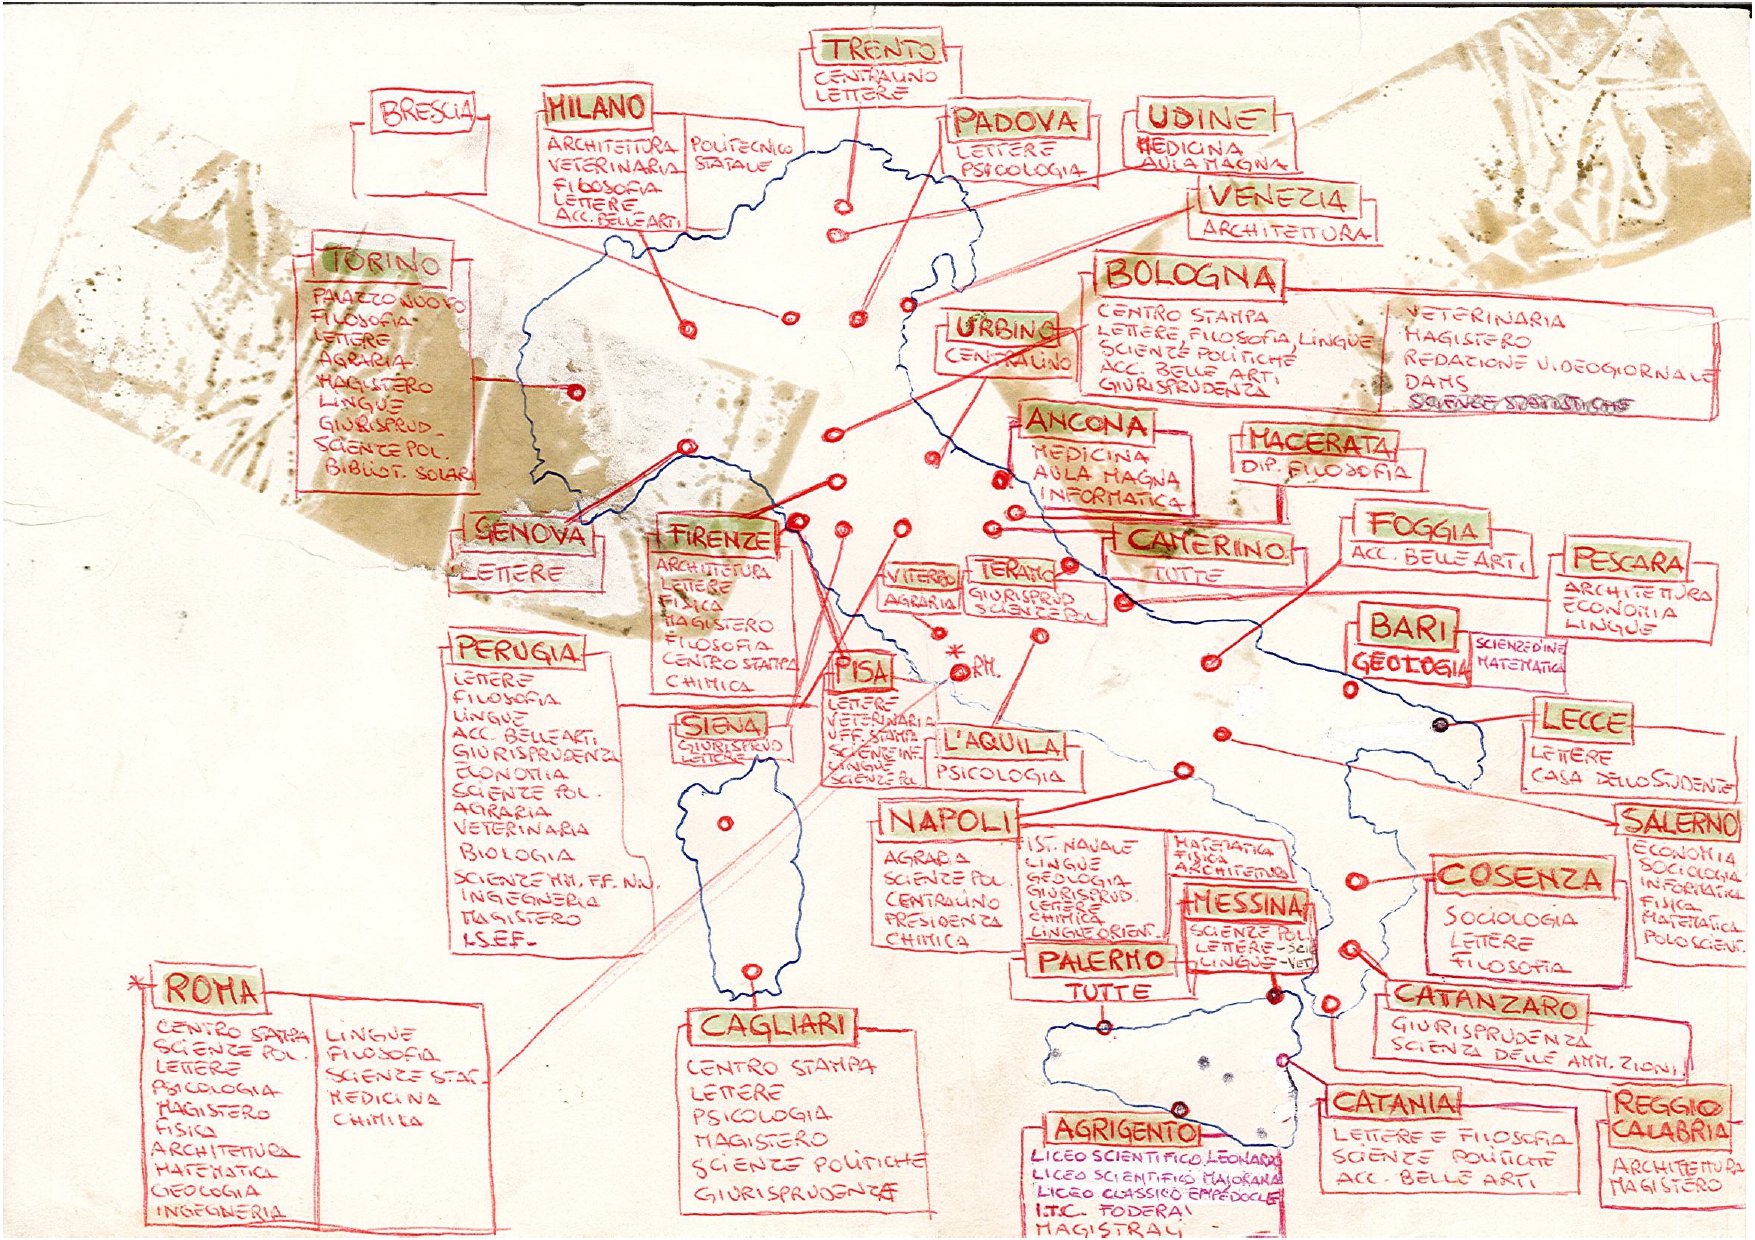 TRENTO
CENTRALINO
LETTERE
BRESCIA
MILANO
ARCHITETTURA
VETERINARIA
FILOSOFIA
LETTERE
ACC. BELLE ARTI
POLITECNICO
STATALE
PADOVA
LETTERE
PSICOLOGIA
UDINE
MEDICINA
AULA MAGNA
VENEZIA
ARCHITETTURA
TORINO
PALAZZO NUOVO
FILOSOFIA
LETTERE
AGRARIA
MAGISTERO
LINGUE
GIURISPRUD.
SCIENZE POL.
BIBLIOT. SOLARI
BOLOGNA
CENTRO STAMPA
LETTERE, FILOSOFIA, LINGUE
SCIENZE POLITICHE
ACC. BELLE ARTI
GIURISPRUDENZA
VETERINARIA
MAGISTERO
REDAZIONE VIDEOGIORNALE
DAMS
SCIENZE STATISTICHE
URBINO
CENTRALINO
ANCONA
MEDICINA
AULA MAGNA
INFORMATICA
MACERATA
DIP. FILOSOFIA
GENOVA
LETTERE
FIRENZE
ARCHITETTURA
LETTERE
FISICA
MAGISTERO
FILOSOFIA
CENTRO STAMPA
CHIMICA
CAMERINO
TUTTE
FOGGIA
ACC. BELLE ARTI
PESCARA
ARCHITETTURA
ECONOMIA
LINGUE
VITERBO
AGRARIA
TERAMO
GIURISPRUD
SCIENZE POL
* RM.
BARI
GEOLOGIA
SCIENZE D'INF
MATEMATICA
PERUGIA
LETTERE
FILOSOFIA
LINGUE
ACC. BELLE ARTI
GIURISPRUDENZA
ECONOMIA
SCIENZE POL.
AGRARIA
VETERINARIA
BIOLOGIA
SCIENZE MM. F.F. N.N.
INGEGNERIA
MAGISTERO
I.S.E.F.
SIENA
GIURISPRUD
LETTERE
PISA
LETTERE
VETERINARIA
UFF. STAMPA
SCIENZE INF.
LINGUE
SCIENZE POL.
L'AQUILA
PSICOLOGIA
LECCE
LETTERE
CASA DELLO STUDENTE
NAPOLI
AGRARIA
SCIENZE POL.
CENTRALINO
PRESIDENZA
CHIMICA
IST. NAVALE
LINGUE
GEOLOGIA
GIURISPRUD.
LETTERE
CHIMICA
LINGUE ORIENT.
MATEMATICA
FISICA
ARCHITETTURA
SALERNO
ECONOMIA
SOCIOLOGIA
INFORMATICA
FISICA
MATEMATICA
POLO SCIENT.
COSENZA
SOCIOLOGIA
LETTERE
FILOSOFIA
MESSINA
SCIENZE POL.
LETTERE - SCIE
LINGUE - VET
PALERMO
TUTTE
* ROMA
CENTRO STAMPA
SCIENZE POL.
LETTERE
PSICOLOGIA
MAGISTERO
FISICA
ARCHITETTURA
MATEMATICA
GEOLOGIA
INGEGNERIA
LINGUE
FILOSOFIA
SCIENZE STAT.
MEDICINA
CHIMICA
CAGLIARI
CENTRO STAMPA
LETTERE
PSICOLOGIA
MAGISTERO
SCIENZE POLITICHE
GIURISPRUDENZA
CATANZARO
GIURISPRUDENZA
SCIENZA DELLE AMM.ZIONI
CATANIA
LETTERE E FILOSOFIA
SCIENZE POLITICHE
ACC. BELLE ARTI
REGGIO
CALABRIA
ARCHITETTURA
MAGISTERO
AGRIGENTO
LICEO SCIENTIFICO, LEONARDO
LICEO SCIENTIFICO MAJORANA
LICEO CLASSICO EMPEDOCLE
I.T.C. FODERA'
MAGISTRALI